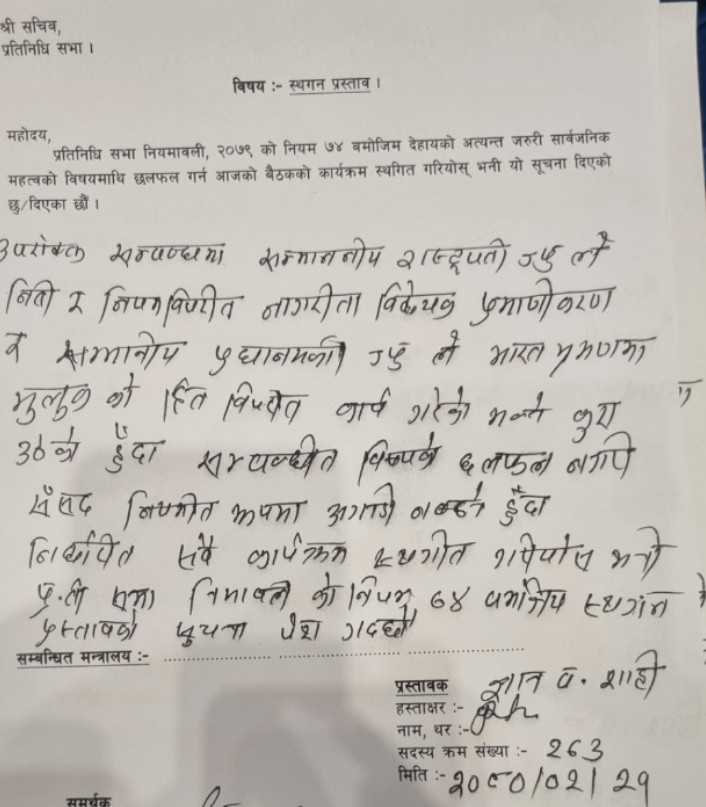 श्री सचिव,
प्रतिनिधि सभा ।
विषय :- स्थगन प्रस्ताव ।
महोदय,
प्रतिनिधि सभा नियमावली, २०७९ को नियम ७४ बमोजिम देहायको अत्यन्त जरुरी सार्वजनिक
महत्वको विषयमाथि छलफल गर्न आजको बैठकको कार्यक्रम स्थगित गरियोस् भनी यो सूचना दिएको
छु/दिएका छौं ।
उपरोक्त सम्वन्धमा सम्माननीय राष्ट्रपती ज्यु ले
निती र नियमविपरीत नागरीता विधेयक प्रमाणीकरण
र सम्मानीय प्रधानमन्त्री ज्यु ले भारत भ्रमणमा
मुलुक को हित विपरीत कार्य गरेको भन्ने कुरा
उठेको हुँदा सम्वन्धीत विषयको छलफल नगरी
सँसद नियमीत रूपमा अगाडी नबढ्ने हुँदा
निर्धारित सवै कार्यक्रम स्थगीत गरियोस भनी
प्र.ती सभा नियमावली को नियम ७४ वमोजिम स्थगन
प्रस्तावको सुचना पेश गर्दछौं
सम्बन्धित मन्त्रालय :-
प्रस्तावक ज्ञान ब. शाही
हस्ताक्षर :-
नाम, थर :-
सदस्य क्रम संख्या :- 263
मिति :- २०८०/०२/२१
समर्थक